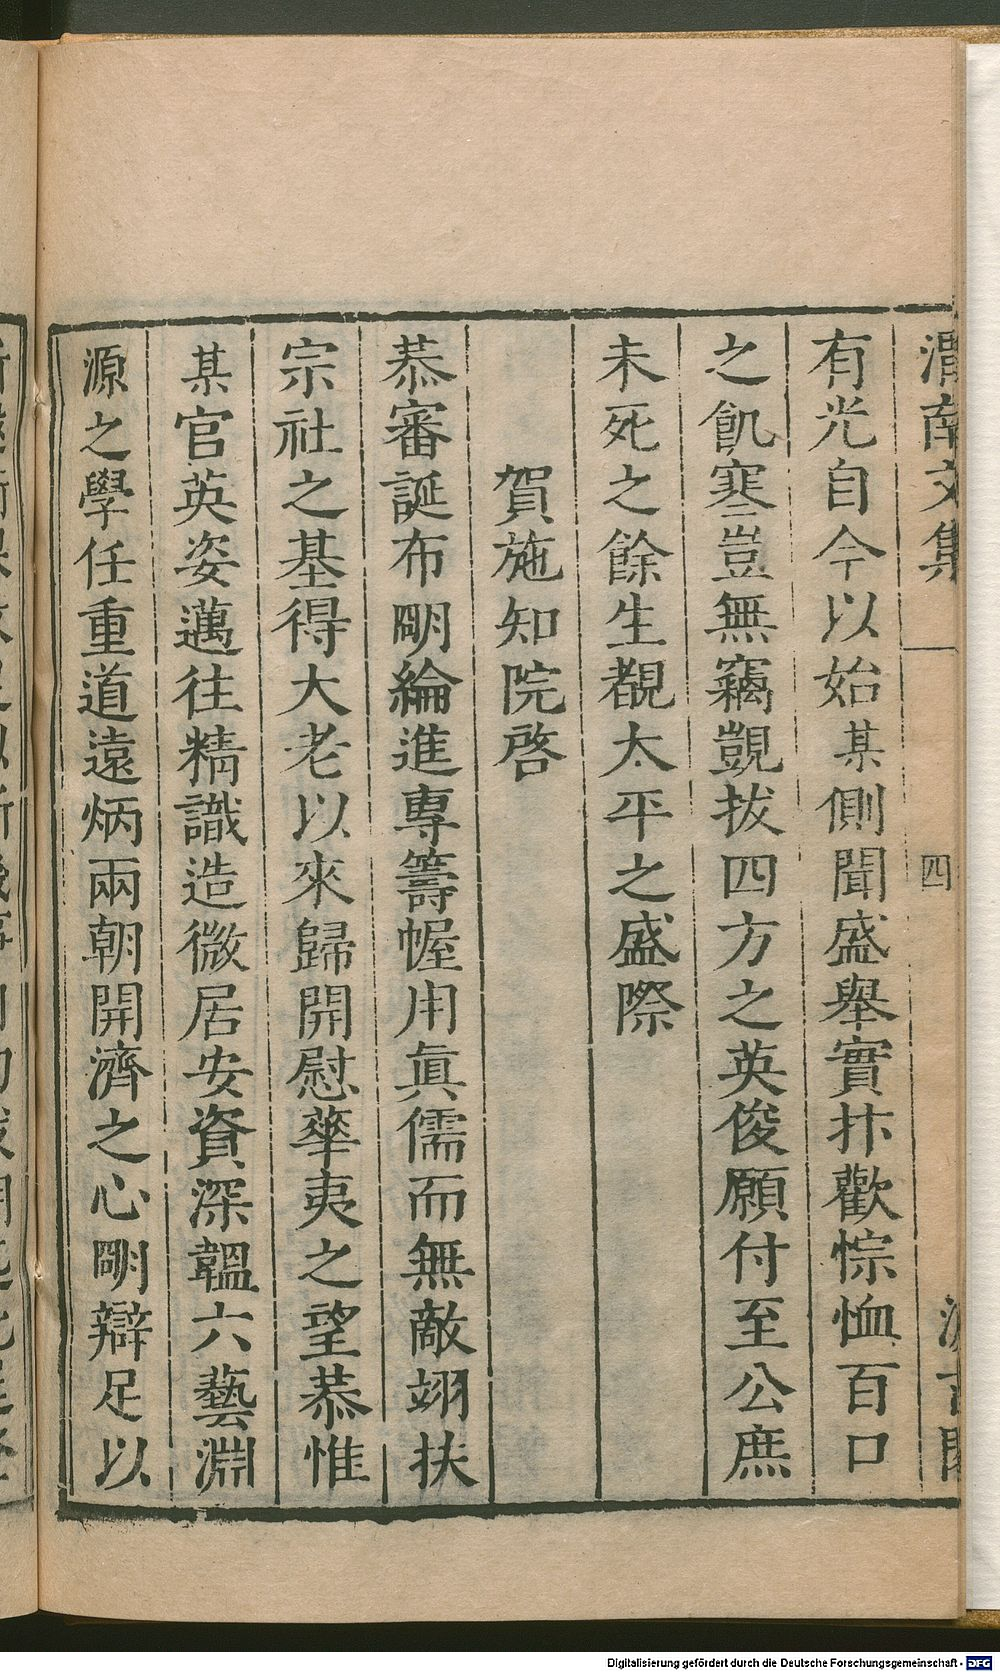 渭南文集
四
汲古閣
有光自今以始某側聞盛舉實抃歡悰恤百口
之飢寒豈無竊覬拔四方之英俊願付至公庶
未死之餘生覩太平之盛際
賀施知院啓
恭審誕布明綸進專籌幄用眞儒而無敵翊扶
宗社之基得大老以來歸開慰華夷之望恭惟
某官英姿邁往精識造微居安資深韞六藝淵
源之學任重道遠炳兩朝開濟之心剛辯足以
Digitalisierung gefördert durch die Deutsche Forschungsgemeinschaft - DFG